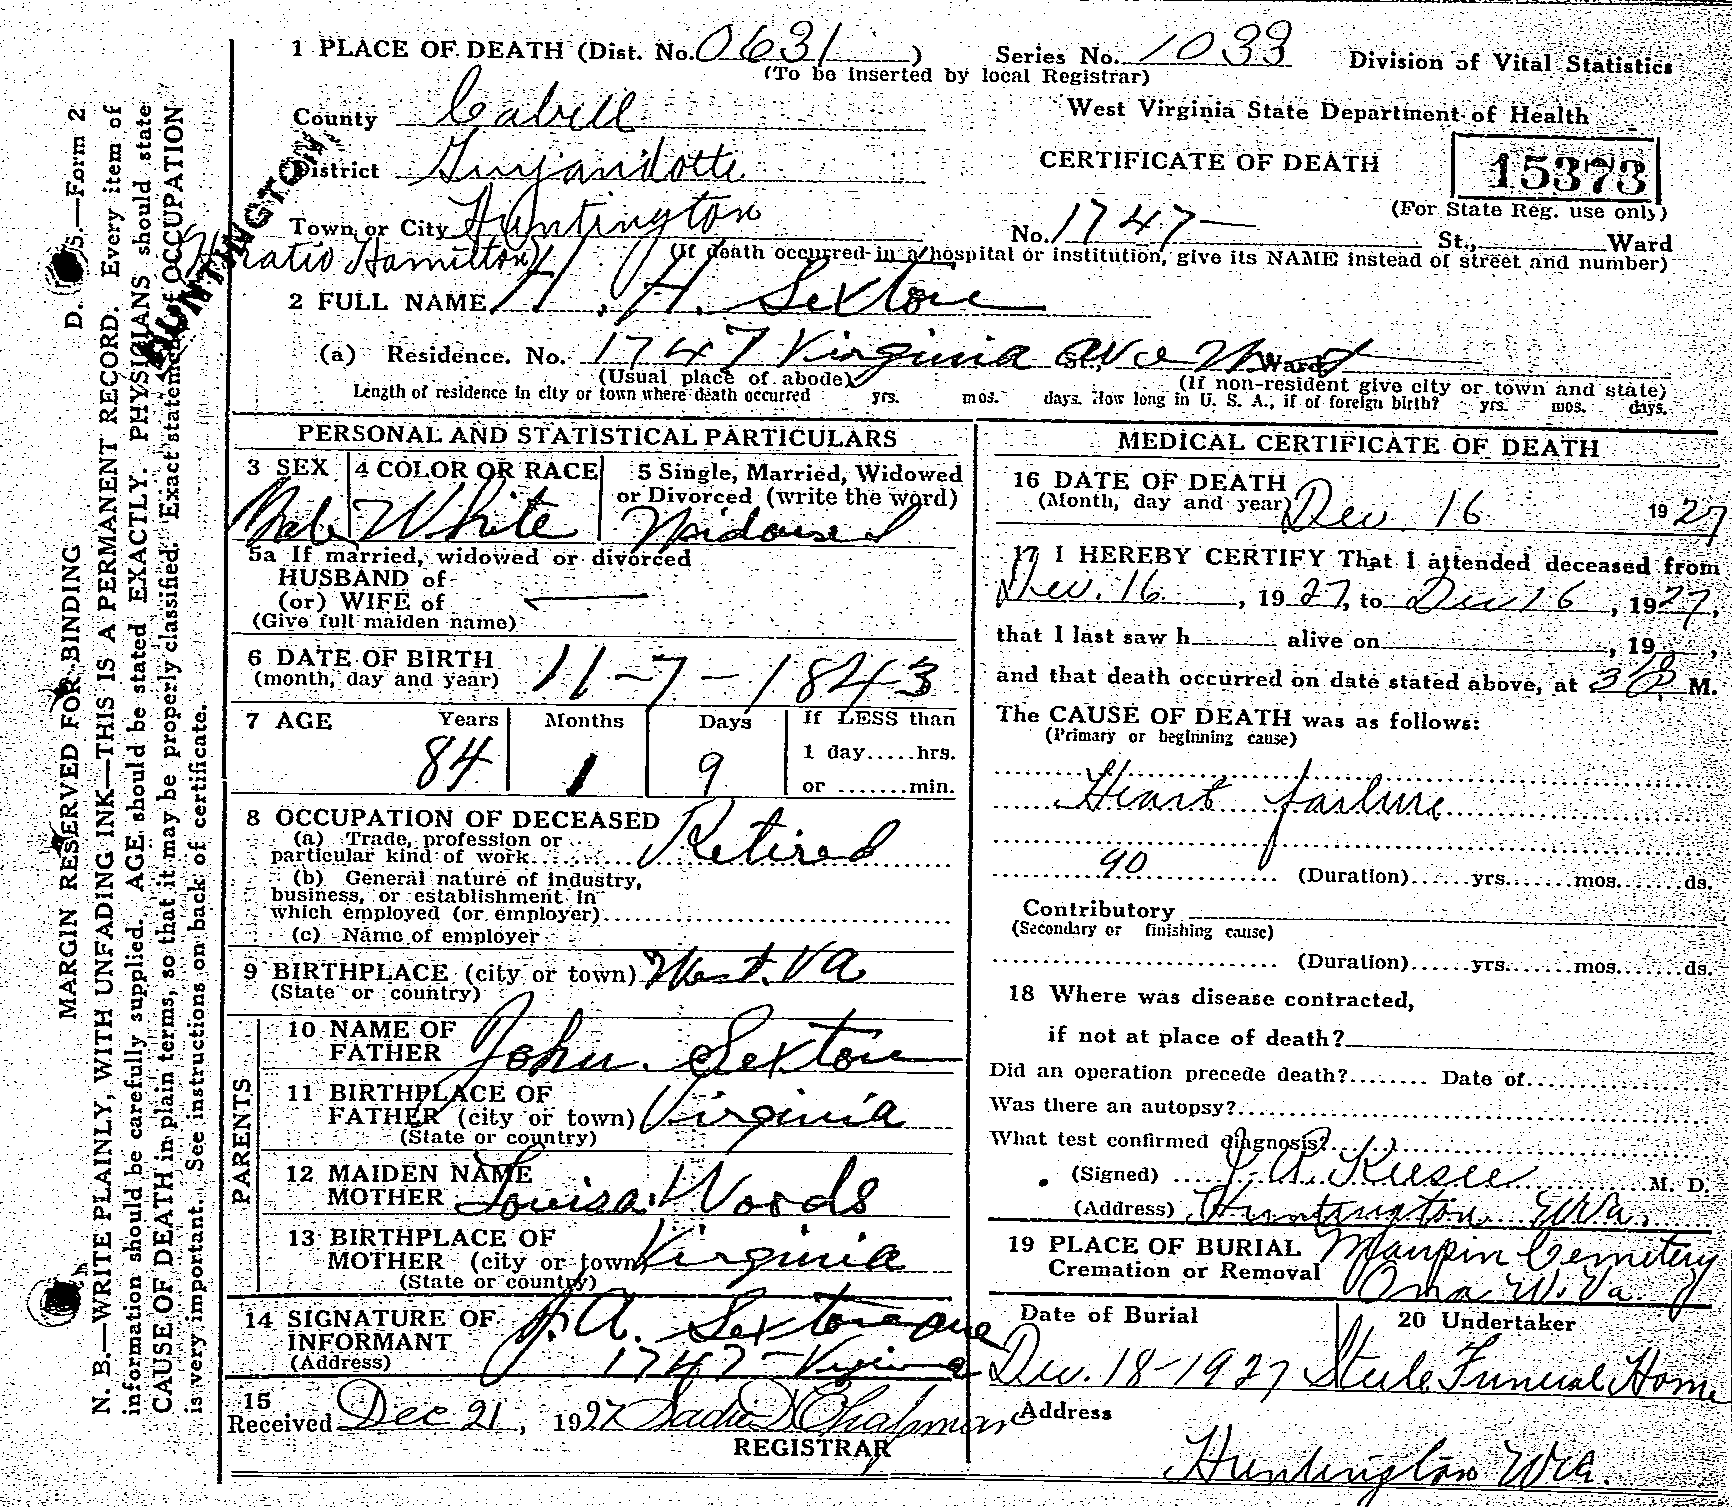 1 PLACE OF DEATH (Dist. No. 0631 ) Series No. 1033 Division of Vital Statistics
(To be inserted by local Registrar)
County Cabell West Virginia State Department of Health
District Guyandotte CERTIFICATE OF DEATH 15373
(For State Reg. use only)
HUNTINGTON
Town or City Huntington No. 1747 St., Ward
(If death occurred in a hospital or institution, give its NAME instead of street and number)
Horatio Hamilton
2 FULL NAME H. H. Sexton
(a) Residence. No. 1747 Virginia ave W St., Ward
(Usual place of abode) (If non-resident give city or town and state)
Length of residence in city or town where death occurred yrs. mos. days. How long in U. S. A., if of foreign birth? yrs. mos. days.
PERSONAL AND STATISTICAL PARTICULARS
3 SEX 4 COLOR OR RACE 5 Single, Married, Widowed
or Divorced (write the word)
Male White Widowed
5a If married, widowed or divorced
HUSBAND of
(or) WIFE of
(Give full maiden name)
6 DATE OF BIRTH
(month, day and year) 11-7-1843
7 AGE Years Months Days If LESS than
1 day.....hrs.
84 1 9
or .......min.
8 OCCUPATION OF DECEASED
(a) Trade, profession or
particular kind of work Retired
(b) General nature of industry,
business, or establishment in
which employed (or employer)
(c) Name of employer
9 BIRTHPLACE (city or town) West. Va
(State or country)
PARENTS
10 NAME OF
FATHER John Sexton
11 BIRTHPLACE OF
FATHER (city or town) Virginia
(State or country)
12 MAIDEN NAME
MOTHER Louisa Woods
13 BIRTHPLACE OF
MOTHER (city or town) Virginia
(State or country)
14 SIGNATURE OF
INFORMANT J. A. Sexton
(Address) 1747 - Virginia ave
15
Received Dec 21, 1927 Sadie D Chapman
REGISTRAR
MEDICAL CERTIFICATE OF DEATH
16 DATE OF DEATH
(Month, day and year) Dec. 16 1927
17 I HEREBY CERTIFY That I attended deceased from
Dec. 16, 1927, to Dec 16, 1927,
that I last saw h alive on , 19 ,
and that death occurred on date stated above, at 3 P. M.
The CAUSE OF DEATH was as follows:
(Primary or beginning cause)
Heart failure
90
(Duration)......yrs.......mos.......ds.
Contributory
(Secondary or finishing cause)
(Duration)......yrs.......mos.......ds.
18 Where was disease contracted,
if not at place of death?
Did an operation precede death?........ Date of
Was there an autopsy?
What test confirmed diagnosis?
(Signed) M. D.
(Address) Huntington WVa.
19 PLACE OF BURIAL Maupin Cemetery
Cremation or Removal Ona W. Va.
Date of Burial 20 Undertaker
Dec. 18-1927 Steele Funeral Home
Address
Huntington WVa.
D. V. S.—Form 2
MARGIN RESERVED FOR BINDING
N. B.—WRITE PLAINLY, WITH UNFADING INK—THIS IS A PERMANENT RECORD. Every item of
information should be carefully supplied. AGE should be stated EXACTLY. PHYSICIANS should state
CAUSE OF DEATH in plain terms, so that it may be properly classified. Exact statement of OCCUPATION
is very important. See instructions on back of certificate.